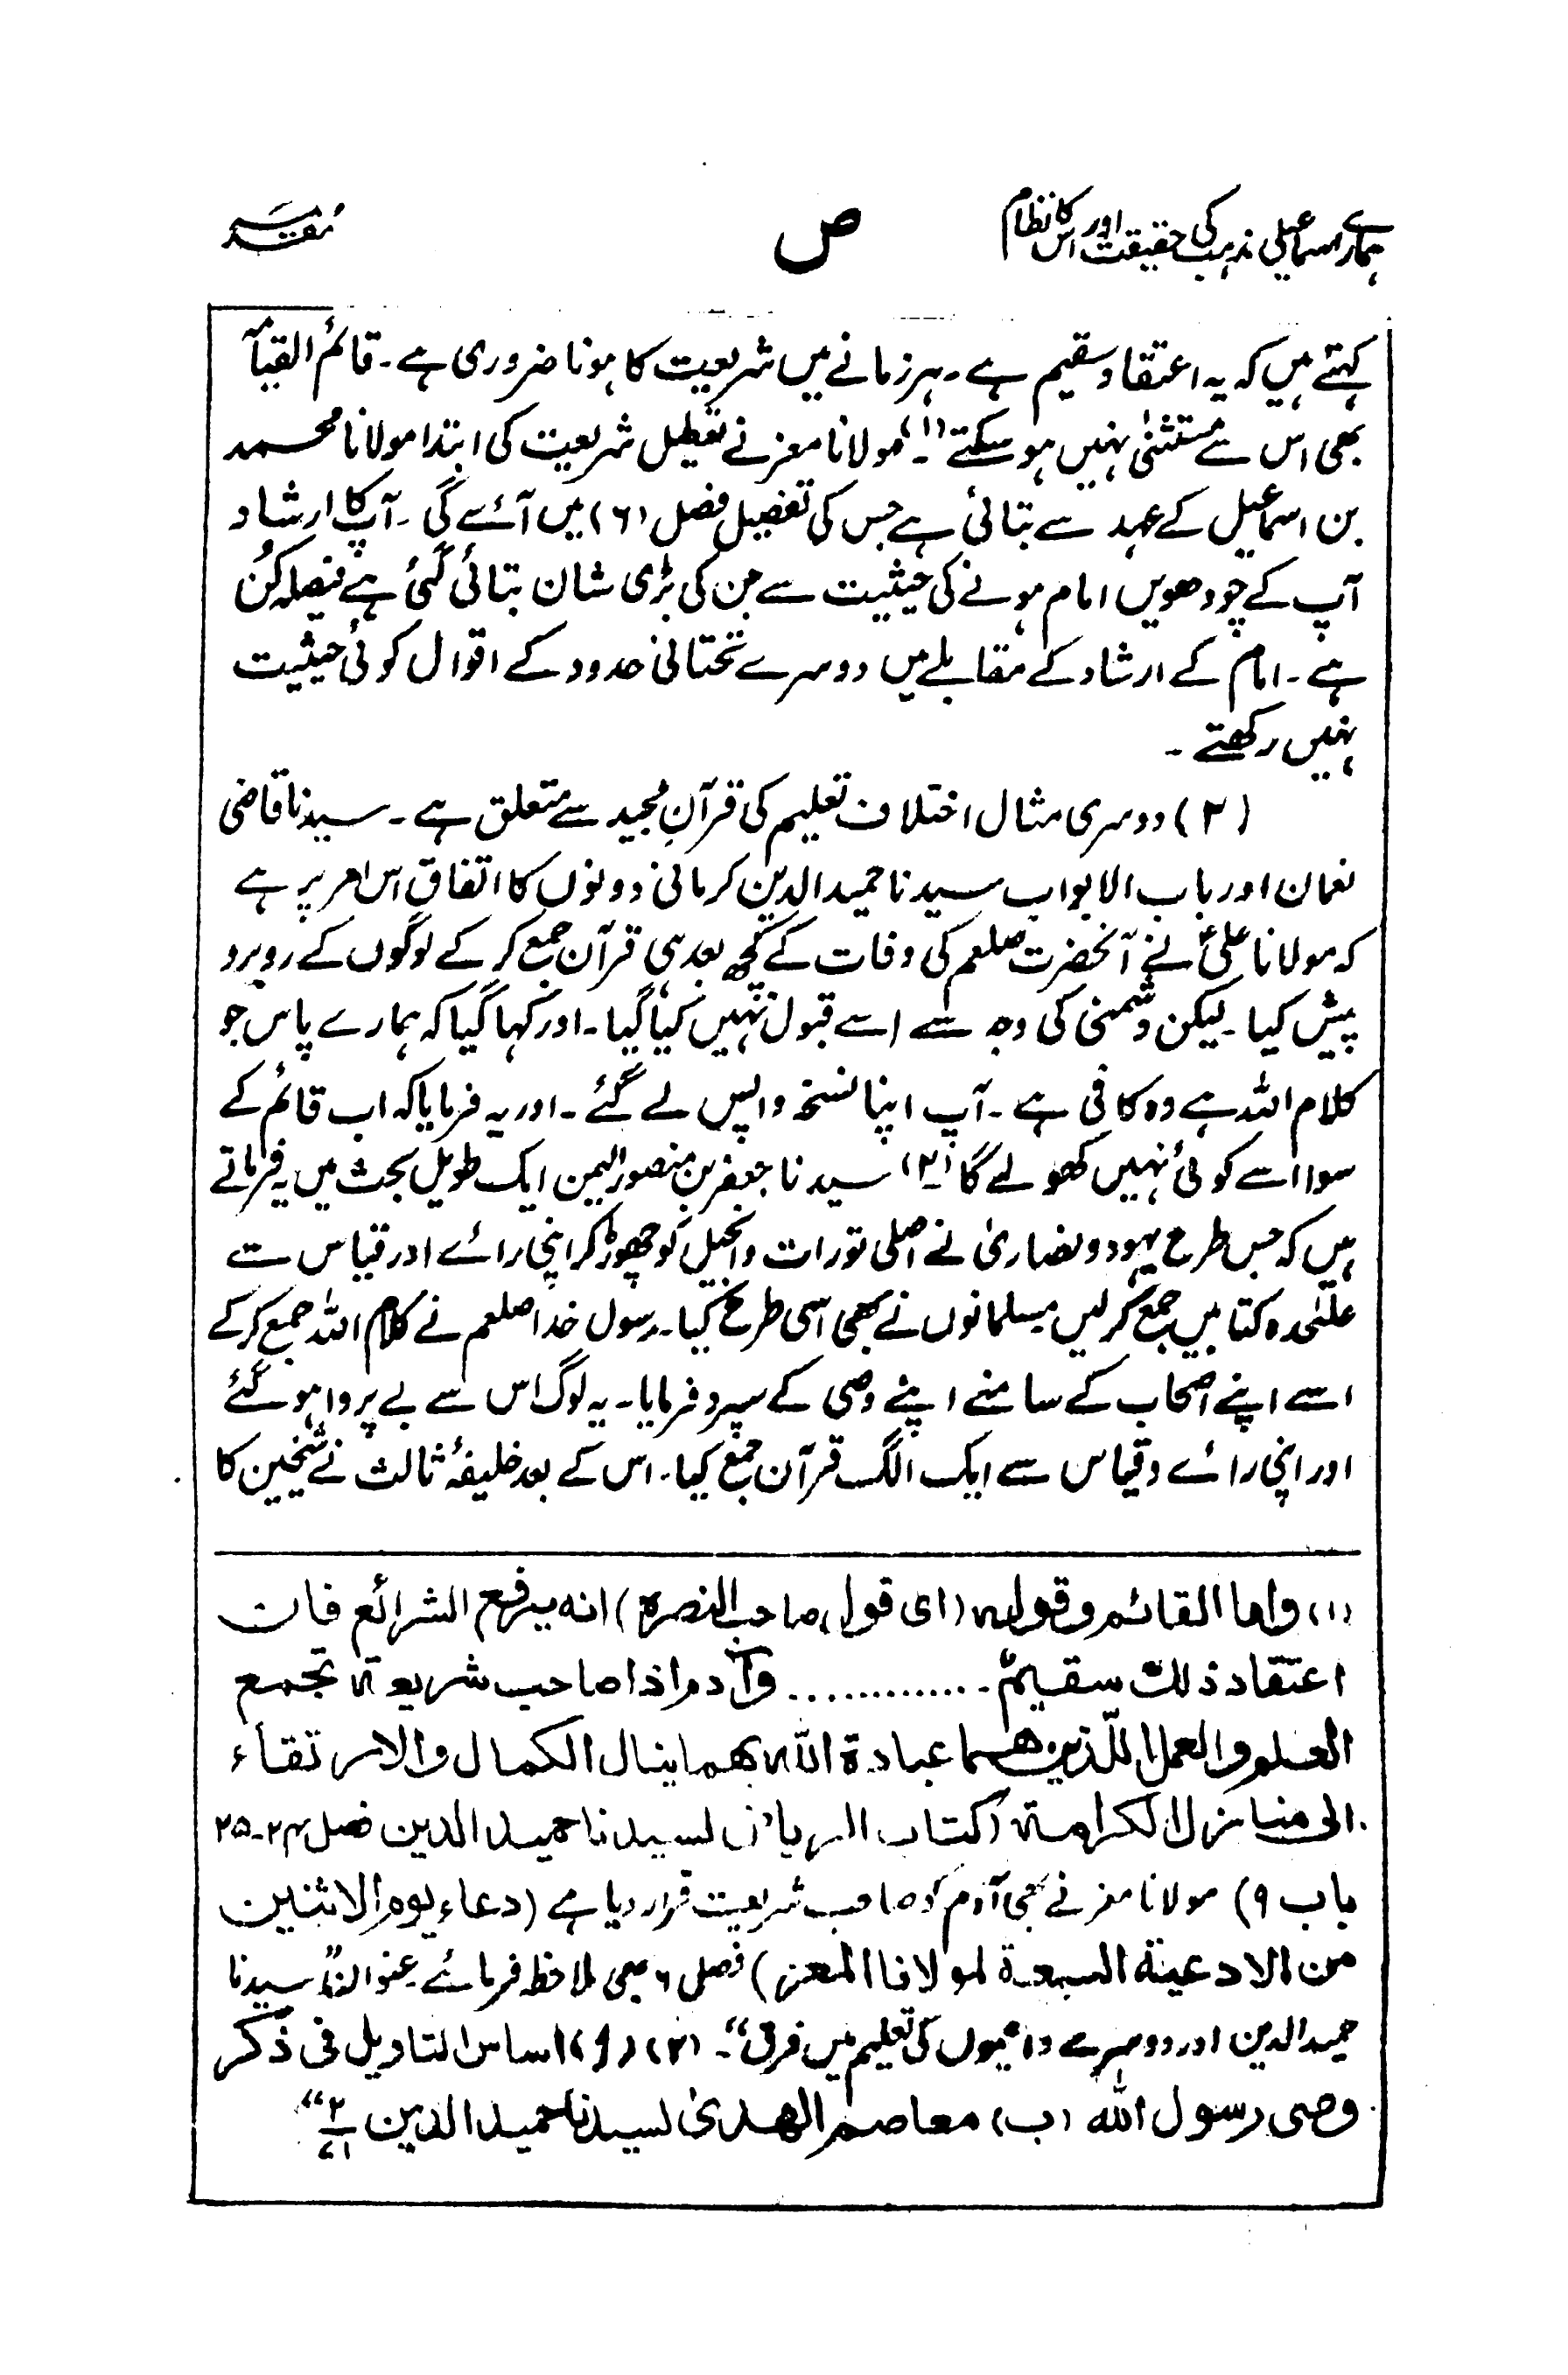 ہمارے اسماعیلی مذہب کی حقیقت اور اس کا نظام
ص
مقدمہ
کہتے ہیں کہ یہ اعتقاد سقیم ہے۔ ہر زمانے میں شریعت کا ہونا ضروری ہے۔ قائم القیامہ
بھی اس سے مستثنیٰ نہیں ہو سکتے (۱)۔ مولانا معز نے تعطیل شریعت کی ابتدا مولانا محمد
بن اسماعیل کے عہد سے بتائی ہے جس کی تفصیل فصل (۶) میں آئے گی۔ آپ کا ارشاد
آپ کے چودھویں امام ہونے کی حیثیت سے جن کی بڑی شان بتائی گئی ہے فیصلہ کُن
ہے۔ امام کے ارشاد کے مقابلے میں دوسرے تختانی حدود کے اقوال کوئی حیثیت
نہیں رکھتے۔
(۲) دوسری مثال اختلاف تعلیم کی قرآنِ مجید سے متعلق ہے۔ سیدنا قاضی
نعمان اور باب الابواب سیدنا حمید الدین کرمانی دونوں کا اتفاق اس امر پر ہے
کہ مولانا علیؑ نے آنحضرت صلعم کی وفات کے کچھ بعد ہی قرآن جمع کر کے لوگوں کے روبرو
پیش کیا۔ لیکن دشمنی کی وجہ سے اسے قبول نہیں کیا گیا۔ اور کہا گیا کہ ہمارے پاس جو
کلام اللہ ہے وہ کافی ہے۔ آپ اپنا نسخہ واپس لے گئے۔ اور یہ فرمایا کہ اب قائم کے
سوا اسے کوئی نہیں کھولے گا (۲) سیدنا جعفر بن منصور الیمن ایک طویل بحث میں یہ فرماتے
ہیں کہ جس طرح یہود و نصاریٰ نے اصلی تورات و انجیل کو چھوڑ کر اپنی رائے اور قیاس سے
علٰحدہ کتابیں جمع کر لیں مسلمانوں نے بھی اسی طرح کیا۔ رسول خدا صلعم نے کلام اللہ جمع کر کے
اسے اپنے اصحاب کے سامنے اپنے وصی کے سپرد فرمایا۔ یہ لوگ اس سے بے پروا ہو گئے
اور اپنی رائے و قیاس سے ایک الگ قرآن جمع کیا۔ اس کے بعد خلیفۂ ثالث نے شیخین کا
(۱) واما القائم وقوله (ای قول صاحب النصرة) انه یرفع الشرائع فان
اعتقاد ذلك سقیم۔ ............ وآدم اذا صاحب شریعة تجمع
العلم والعمل اللذین هما عبادة الله بهما ینال الکمال والارتقاء
الی منازل الکرامة (کتاب الریاض لسیدنا حمید الدین فصل ۲۴۔۲۵
باب ۹) مولانا معز نے بھی آدم کو صاحب شریعت قرار دیا ہے (دعاء یوم الاثنین
من الادعیة السبعة لمولانا المعز) فصل ۶ بھی ملاحظہ فرمائے۔ عنوان "سیدنا
حمید الدین اور دوسرے داعیوں کی تعلیم میں فرق"۔ (۲) (ا) اساس التاویل فی ذکر
وصی رسول الله (ب) معاصم الهدیٰ لسیدنا حمید الدین